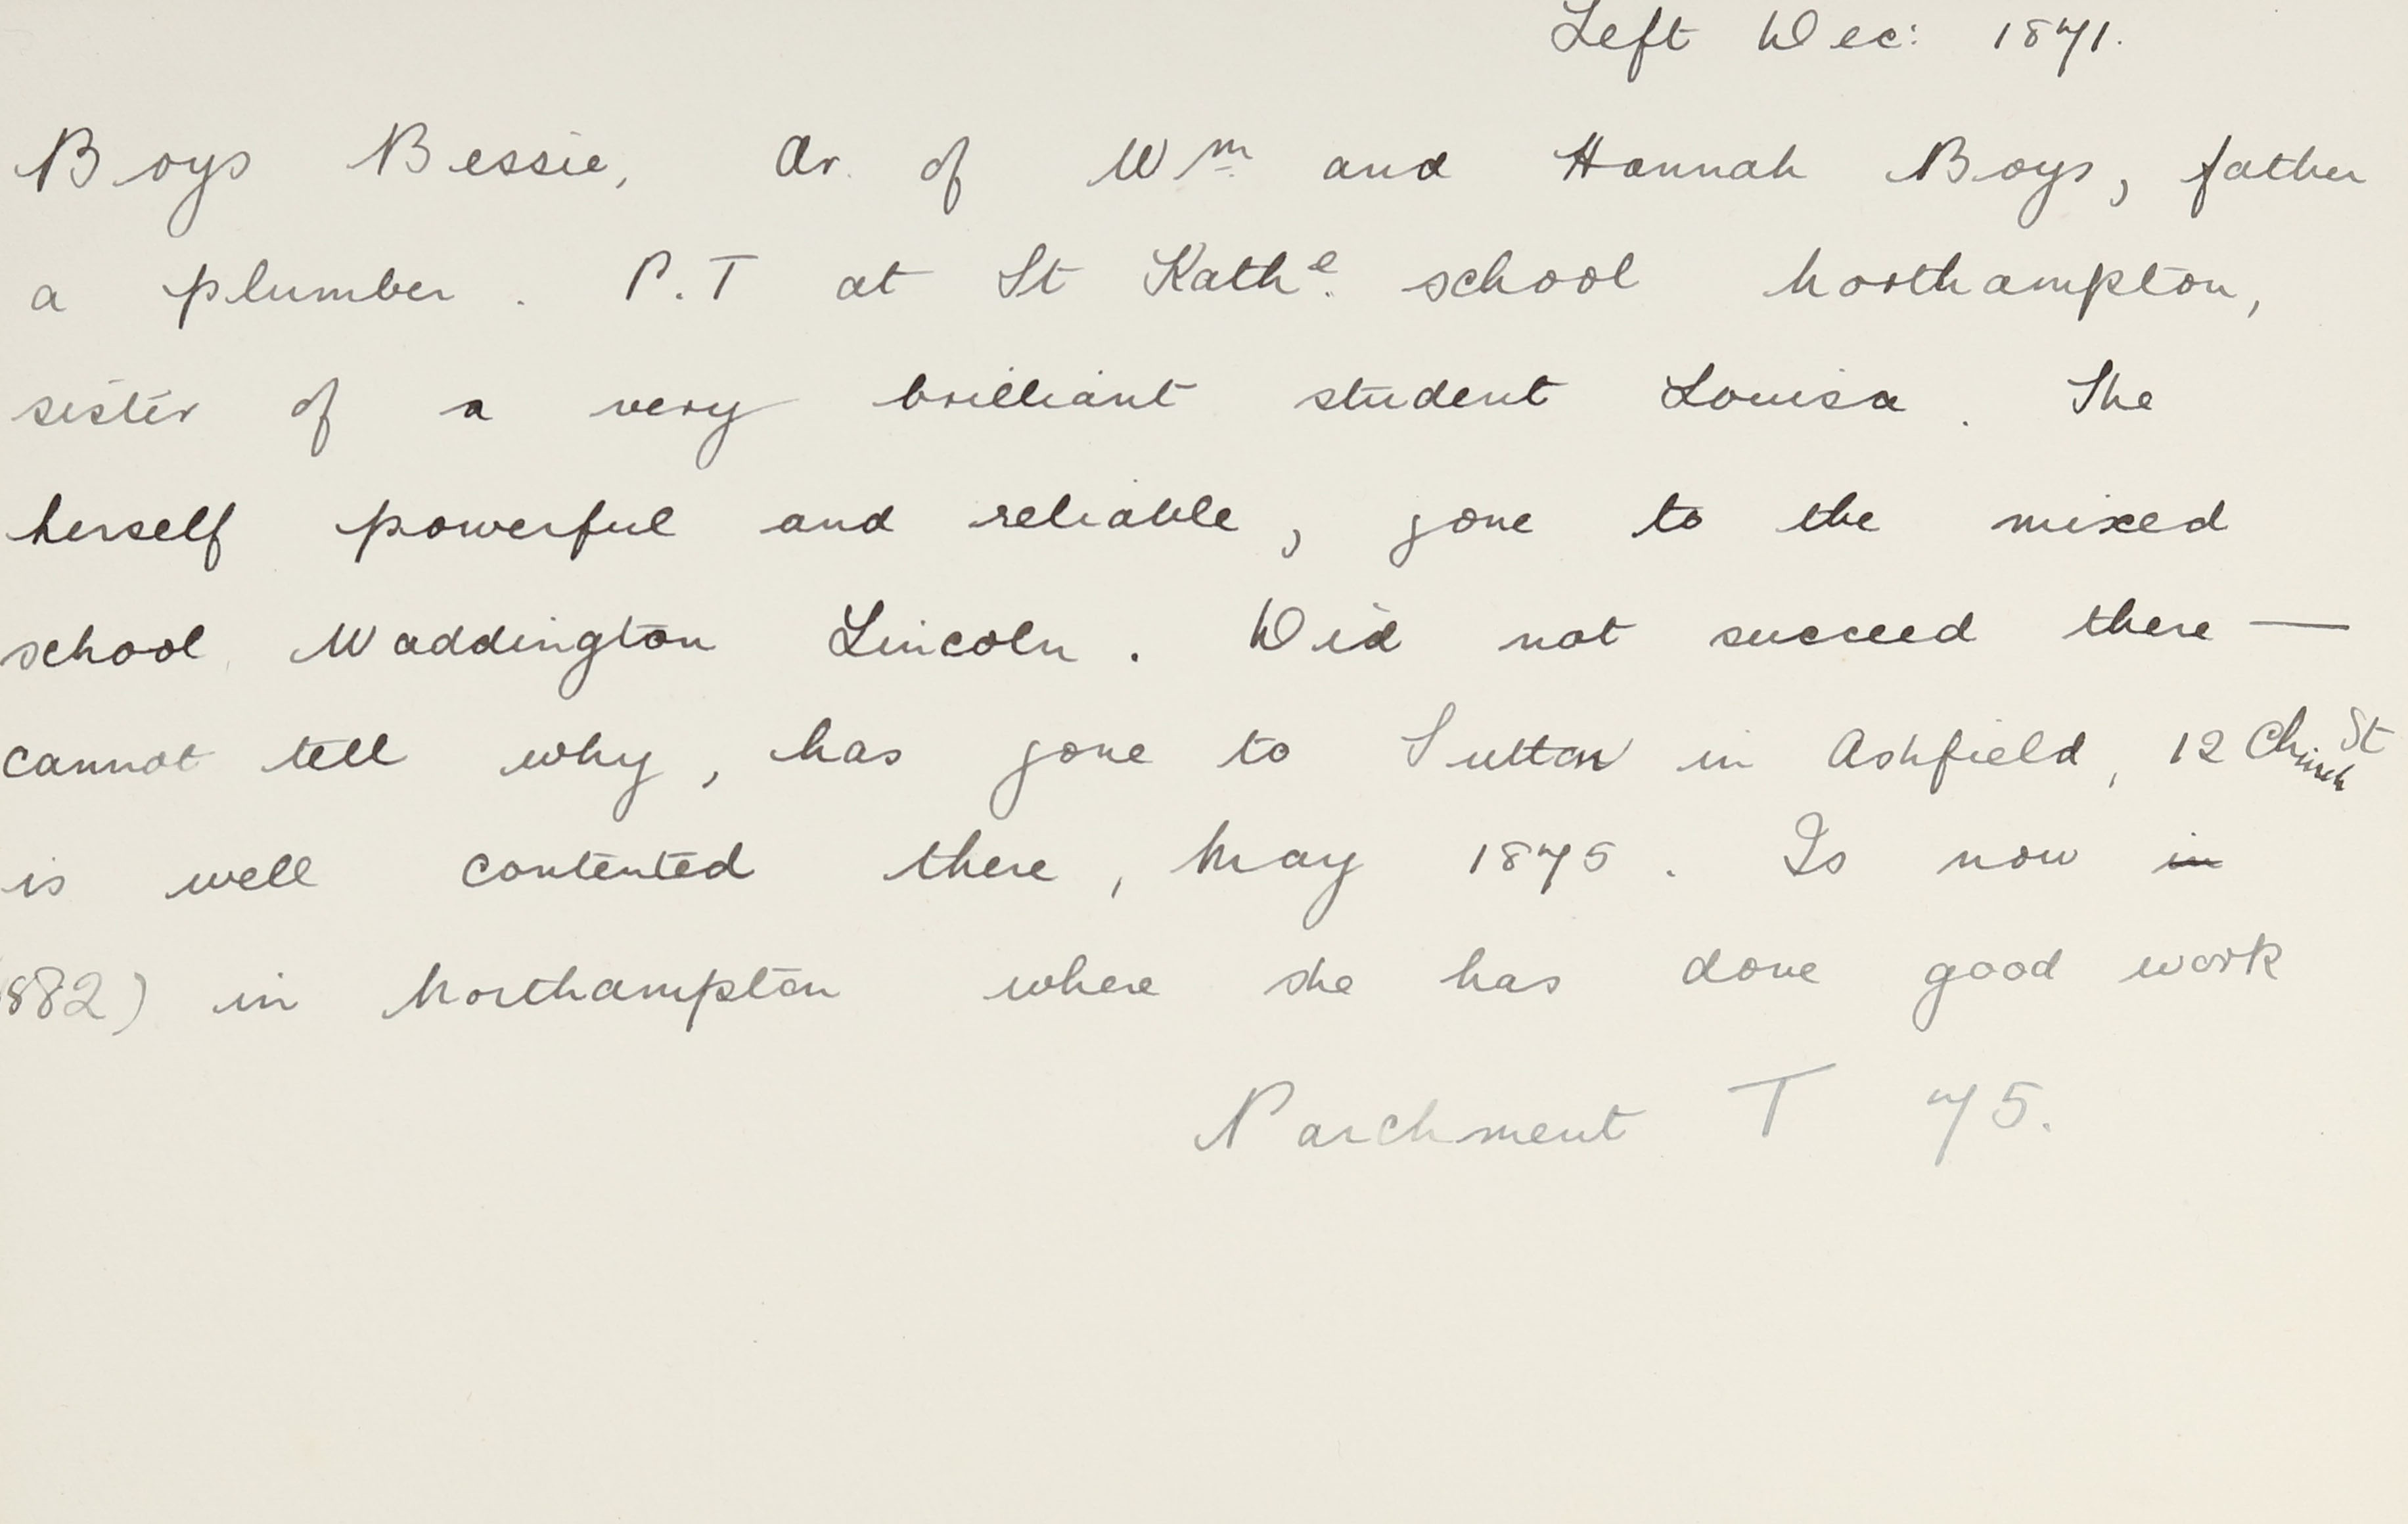 Left Dec: 1871.
Boys Bessie, Dr. of Wm and Hannah Boys, father
a plumber. P.T at St Kathe. school Northampton,
sister of a very brilliant student Louisa. She
herself powerful and reliable, gone to the mixed
school Waddington Lincoln. Did not succeed there —
cannot tell why, has gone to Sutton in Ashfield, 12 Church St
is well contented there, May 1875. Is now in
882) in Northampton where she has done good work
Parchment T 75.